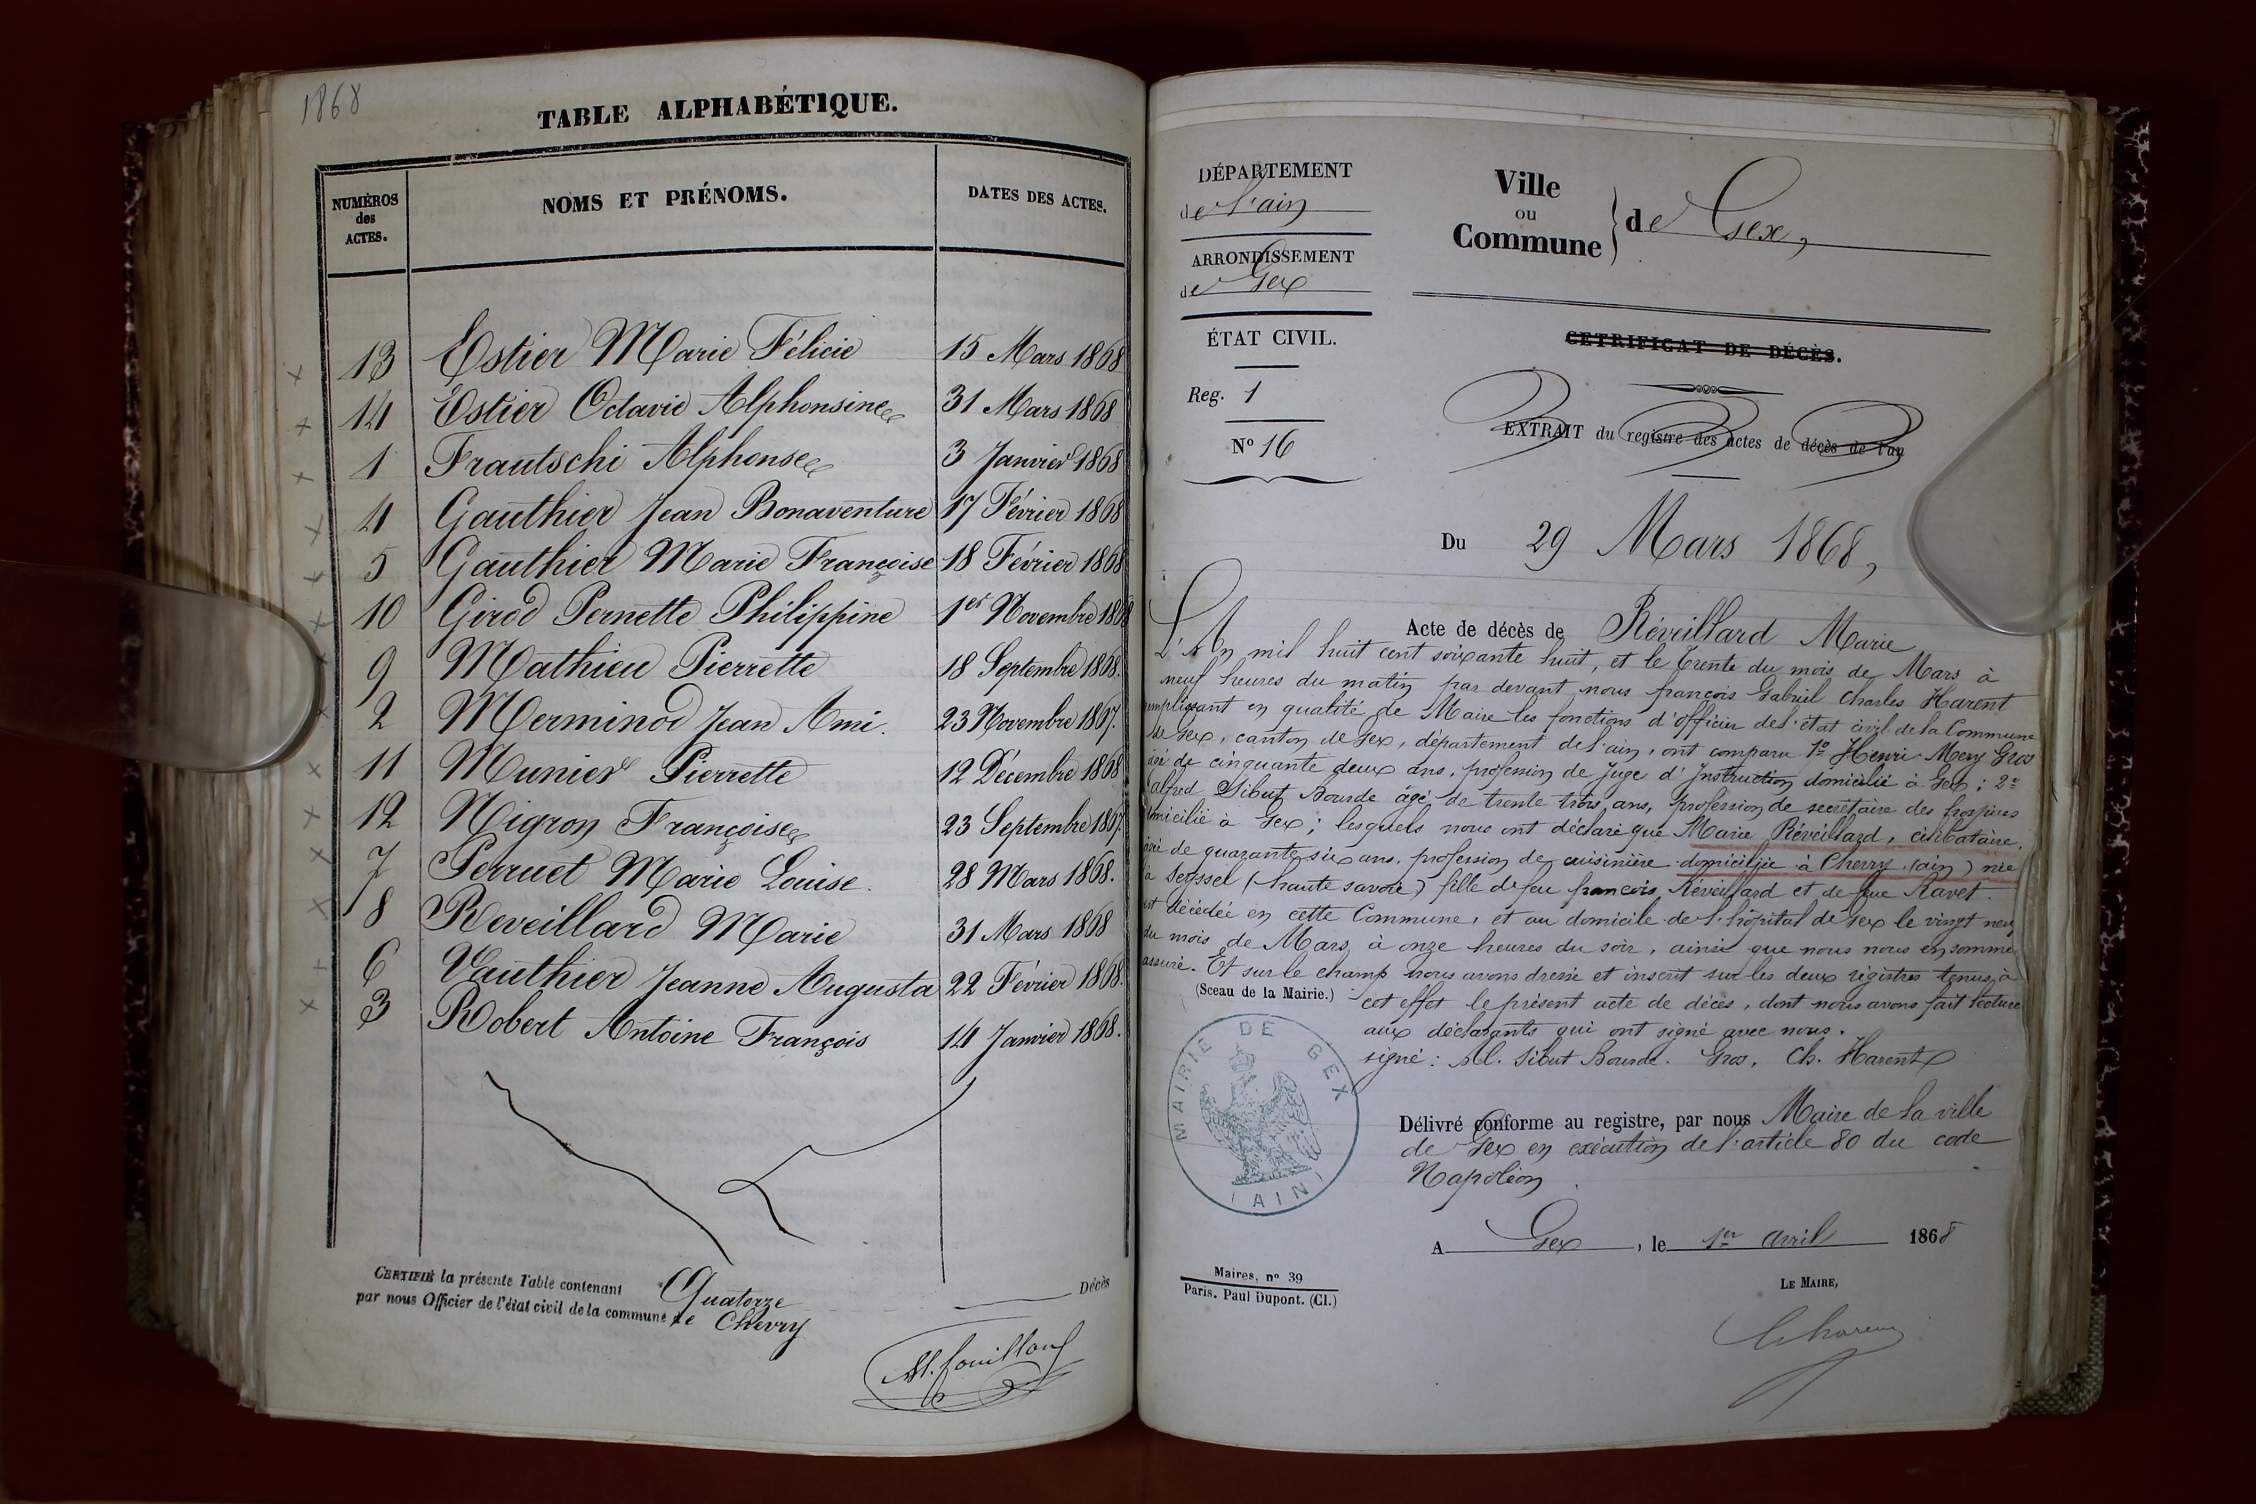 1868
TABLE ALPHABÉTIQUE.
NUMÉROS des ACTES. NOMS ET PRÉNOMS. DATES DES ACTES.
13 Estier Marie Félicie 15 Mars 1868
14 Estier Octavie Alphonsine 31 Mars 1868
1 Frautschi Alphonse 3 Janvier 1868
4 Gauthier Jean Bonaventure 17 Février 1868
5 Gauthier Marie Françoise 18 Février 1868
10 Girod Pernette Philippine 1er Novembre 1868
9 Mathieu Pierrette 18 Septembre 1868.
2 Merminod Jean Ami. 23 Novembre 1867.
11 Munier Pierrette 12 Décembre 1868
12 Nigron Françoise 23 Septembre 1867.
7 Perruet Marie Louise. 28 Mars 1868.
8 Reveillard Marie 31 Mars 1868
6 Vauthier Jeanne Augusta 22 Février 1868.
3 Robert Antoine François 14 Janvier 1868.
CERTIFIÉ la présente Table contenant Quatorze Décès
par nous Officier de l'état civil de la commune de Chevry
DÉPARTEMENT
de l'ain
ARRONDISSEMENT
de Gex
ÉTAT CIVIL.
Reg. 1
N° 16
Ville ou Commune de Gex,
CETRIFICAT DE DÉCÈS.
EXTRAIT du registre des actes de décès de l'an
Du 29 Mars 1868,
Acte de décès de Réveillard Marie
L'An mil huit cent soixante huit, et le trente du mois de Mars à
neuf heures du matin par devant nous françois Gabriel Charles Harent
remplissant en qualité de Maire les fonctions d'officier de l'état civil de la Commune
de Gex, canton de Gex, département de l'ain, ont comparu 1° Henri Mery Gros
âgé de cinquante deux ans, profession de Juge d'Instruction domicilié à Gex; 2°
alfred Sibut Bourde âgé de trente trois ans, profession de secrétaire des hospices
domicilié à Gex; lesquels nous ont déclaré que Marie Réveillard, célibataire,
âgée de quarante six ans, profession de cuisinière domiciliée à Chevry (ain) née
à Seyssel (haute savoie) fille de feu françois Réveillard et de feue Ravet.
est décédée en cette Commune, et au domicile de l'hôpital de Gex le vingt neuf
du mois de Mars à onze heures du soir, ainsi que nous nous en sommes
assuré. Et sur le champ nous avons dressé et inscrit sur les deux régistres tenus à
(Sceau de la Mairie.) cet effet le présent acte de décès, dont nous avons fait lecture
aux déclarants qui ont signé avec nous.
signé: Al. Sibut Bourde. Gros, Ch. Harent
MAIRIE DE GEX (AIN)
Délivré conforme au registre, par nous Maire de la ville
de Gex en exécution de l'article 80 du code
Napoléon
A Gex, le 1er avril 1868
LE MAIRE,
Maires, n° 39
Paris. Paul Dupont. (Cl.)